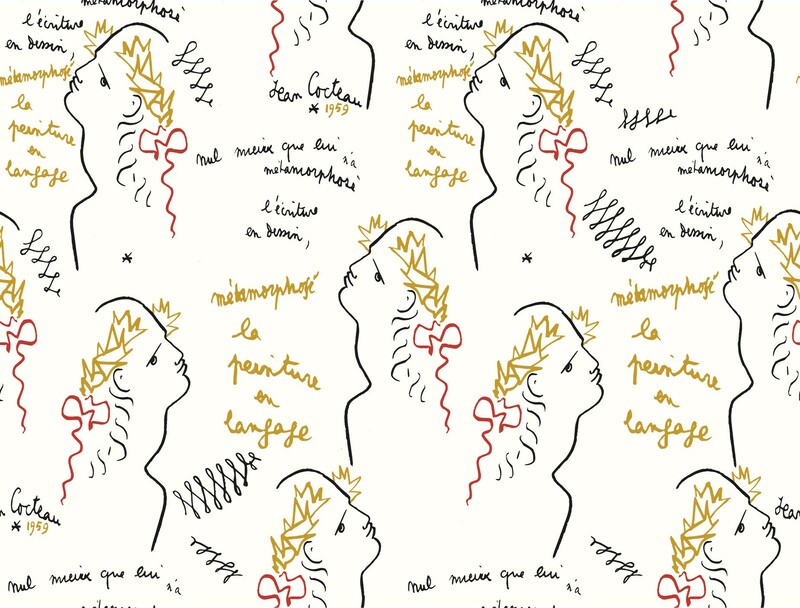 métamorphosé
l'écriture
en dessin,
métamorphosé
la
peinture
en
langage
Jean Cocteau
* 1959
nul mieux que lui n'a
métamorphosé
l'écriture
en dessin,
métamorphosé
la
peinture
en
langage
métamorphosé
l'écriture
en dessin,
métamorphosé
la
peinture
en
langage
nul mieux que lui n'a
métamorphosé
l'écriture
en dessin,
métamorphosé
la
peinture
en
langage
n Cocteau
* 1959
Jean
nul mieux que lui n'a
nul mieux que lui n'a